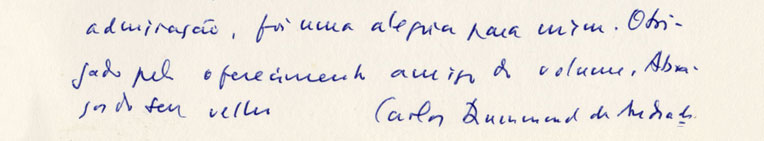 admiração, foi uma alegria para mim. Obri-
gado pelo oferecimento amigo do volume. Abra-
ços do seu velho Carlos Drummond de Andrade